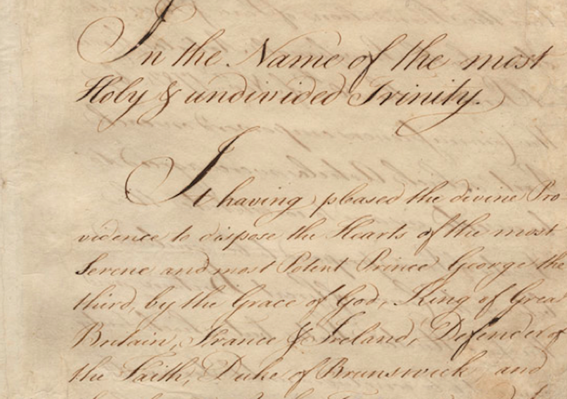 In the Name of the most
Holy & undivided Trinity.
It having pleased the divine Pro-
vidence to dispose the Hearts of the most
Serene and most Potent Prince George the
third, by the Grace of God, King of Great
Britain, France & Ireland, Defender of
the Faith, Duke of Brunswick and